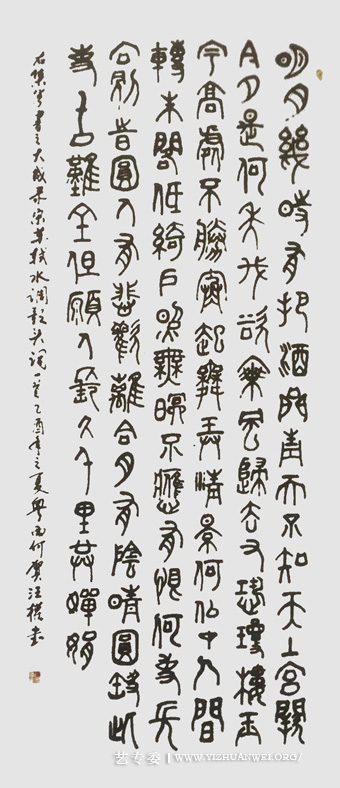 明月幾時有把酒問青天不知天上宮闕
今夕是何年我欲乘風歸去又恐瓊樓玉
宇高處不勝寒起舞弄清影何似在人間
轉朱閣低綺戶照無眠不應有恨何事長
向別時圓人有悲歡離合月有陰晴圓缺此
事古難全但願人長久千里共嬋娟
宋蘇軾水調歌头詞一首乙酉年之夏粤西何賀汪书
艺专委 | WWW.YIZHUANWEI.ORG/